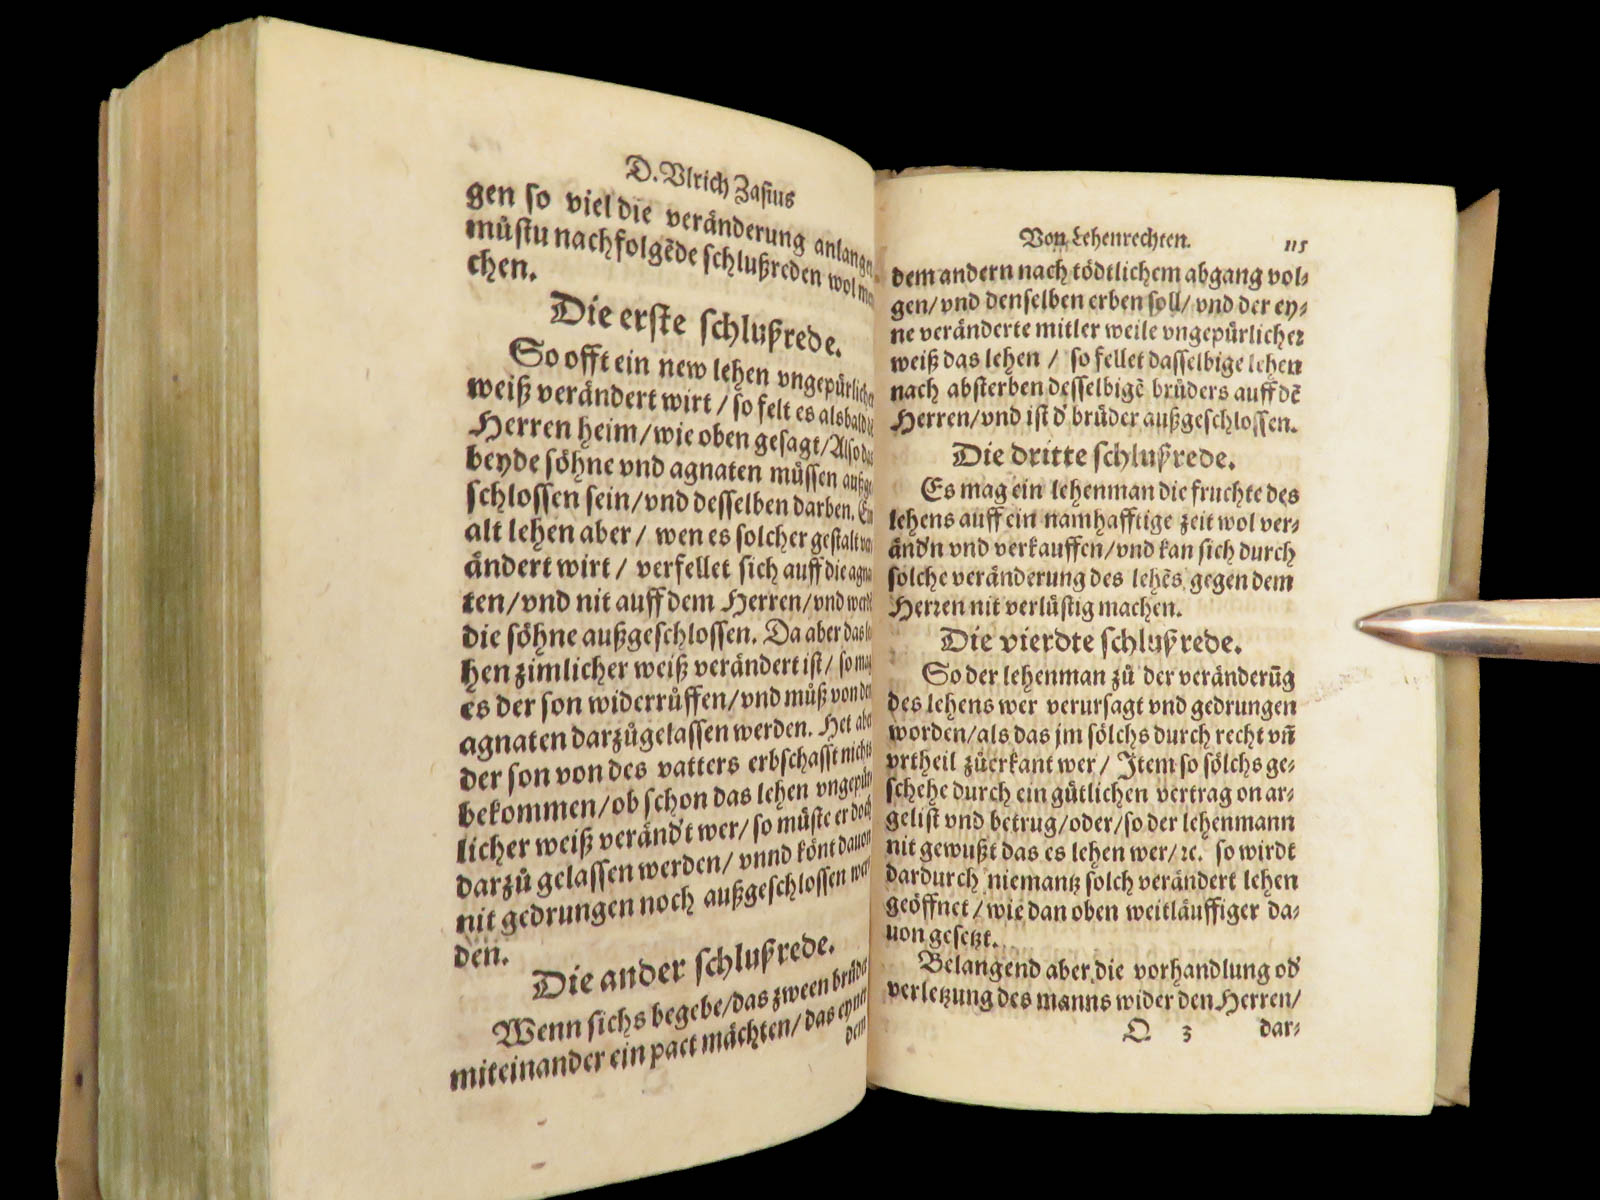 D. Vlrich Zasius
gen so viel die veränderung anlangen
můstu nachfolgẽde schlußreden wol
chen.
Die erste schlußrede.
So offt ein new lehen vngepürlicher
weiß verändert wirt / so felt es alsbald
Herren heim / wie oben gesagt / Also
beyde söhne vnd agnaten müssen
schlossen sein / vnd desselben darben. Ein
alt lehen aber / wen es solcher gestalt
ändert wirt / verfellet sich auff die agna
ten / vnd nit auff dem Herren / vnd
die söhne außgeschlossen. Da aber das
hen zimlicher weiß verändert ist / so mag
es der son widerrůffen / vnd můß von den
agnaten darzůgelassen werden. Het aber
der son von des vatters erbschafft nichts
bekommen / ob schon das lehen vngepür
licher weiß veränd't wer / so můste er doch
darzů gelassen werden / vnnd könt dauon
nit gedrungen noch außgeschlossen wer
den.
Die ander schlußrede.
Wenn sichs begebe / das zween brüder
miteinander ein pact mächten / das eyner
dem
Von Lehenrechten. 115
dem andern nach tödtlichem abgang vol-
gen / vnd denselben erben soll / vnd der ey-
ne veränderte mitler weile vngepürlicher
weiß das lehen / so fellet dasselbige lehen
nach absterben desselbigẽ brüders auff dẽ
Herren / vnd ist d' brüder außgeschlossen.
Die dritte schlußrede.
Es mag ein lehenman die fruchte des
lehens auff ein namhafftige zeit wol ver-
änd'n vnd verkauffen / vnd kan sich durch
solche veränderung des lehẽs gegen dem
Herren nit verlüstig machen.
Die vierdte schlußrede.
So der lehenman zů der veränderũg
des lehens wer verursagt vnd gedrungen
worden / als das jm sölchs durch recht vñ
vrtheil zůerkant wer / Item so sölchs ge-
schehe durch ein gütlichen vertrag on ar-
gelist vnd betrug / oder / so der lehenmann
nit gewußt das es lehen wer / ꝛc. so wirdt
dardurch niemantz solch verändert lehen
geöffnet / wie dan oben weitläuffiger da-
uon gesetzt.
Belangend aber die vorhandlung od'
verletzung des manns wider den Herren /
Q 3 dar-